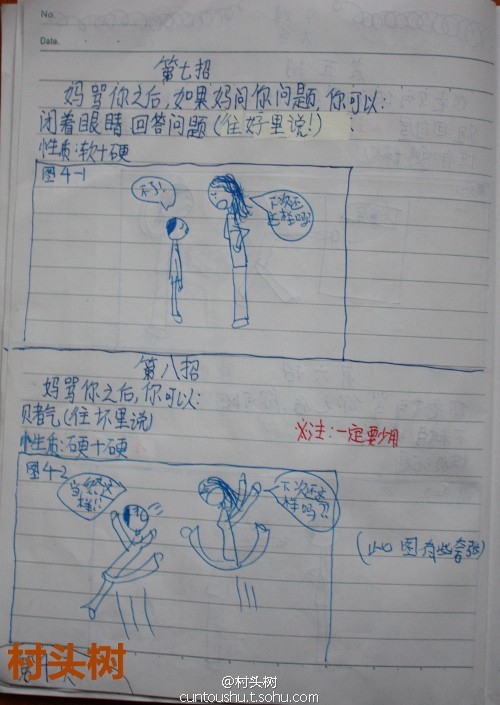 No.
Date.
第七招
妈骂你之后,如果妈问你问题,你可以:
闭着眼睛回答问题(往好里说!)
性质:软+硬
图4-1
不了!
下次还
这样吗?
第八招
妈骂你之后,你可以:
赌气(往坏里说)
※注:一定要少用
性质:硬+硬
图4-2
当然这
样!!
下次还这
样吗?!
(此图有些夸张)
村头树
@村头树
cuntoushu.t.sohu.com